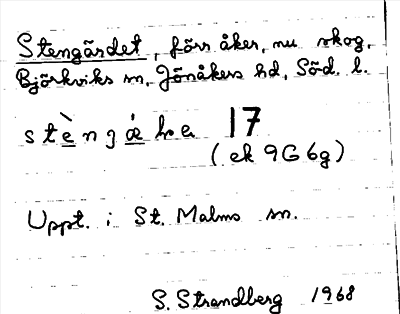 Stengärdet, förr åker, nu skog,
Björkviks sn, Jönåkers hd, Söd. l.
17
(ek 9G 6g)
Uppt. i St. Malms sn.
S. Strandberg 1968